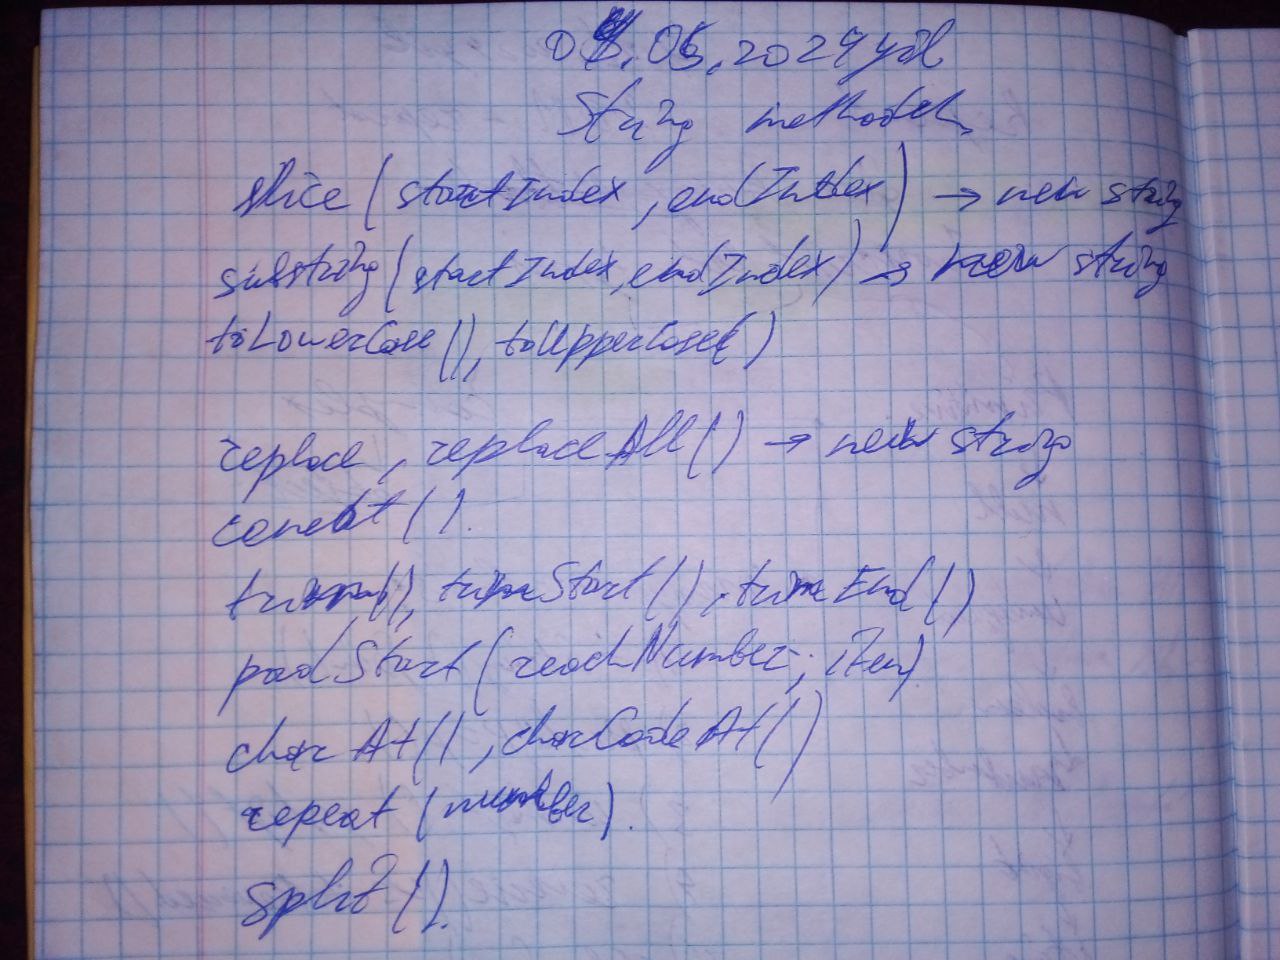 .05.2024 yil
String methodlar
slice(startIndex, endIndex) → new string
substring(startIndex, endIndex) → new string
toLowerCase(), toUpperCase()
replace, replaceAll() → new string
concat().
trim(), trimStart(), trimEnd()
padStart(reachNumber, item)
charAt(), charCodeAt()
repeat(number).
split().